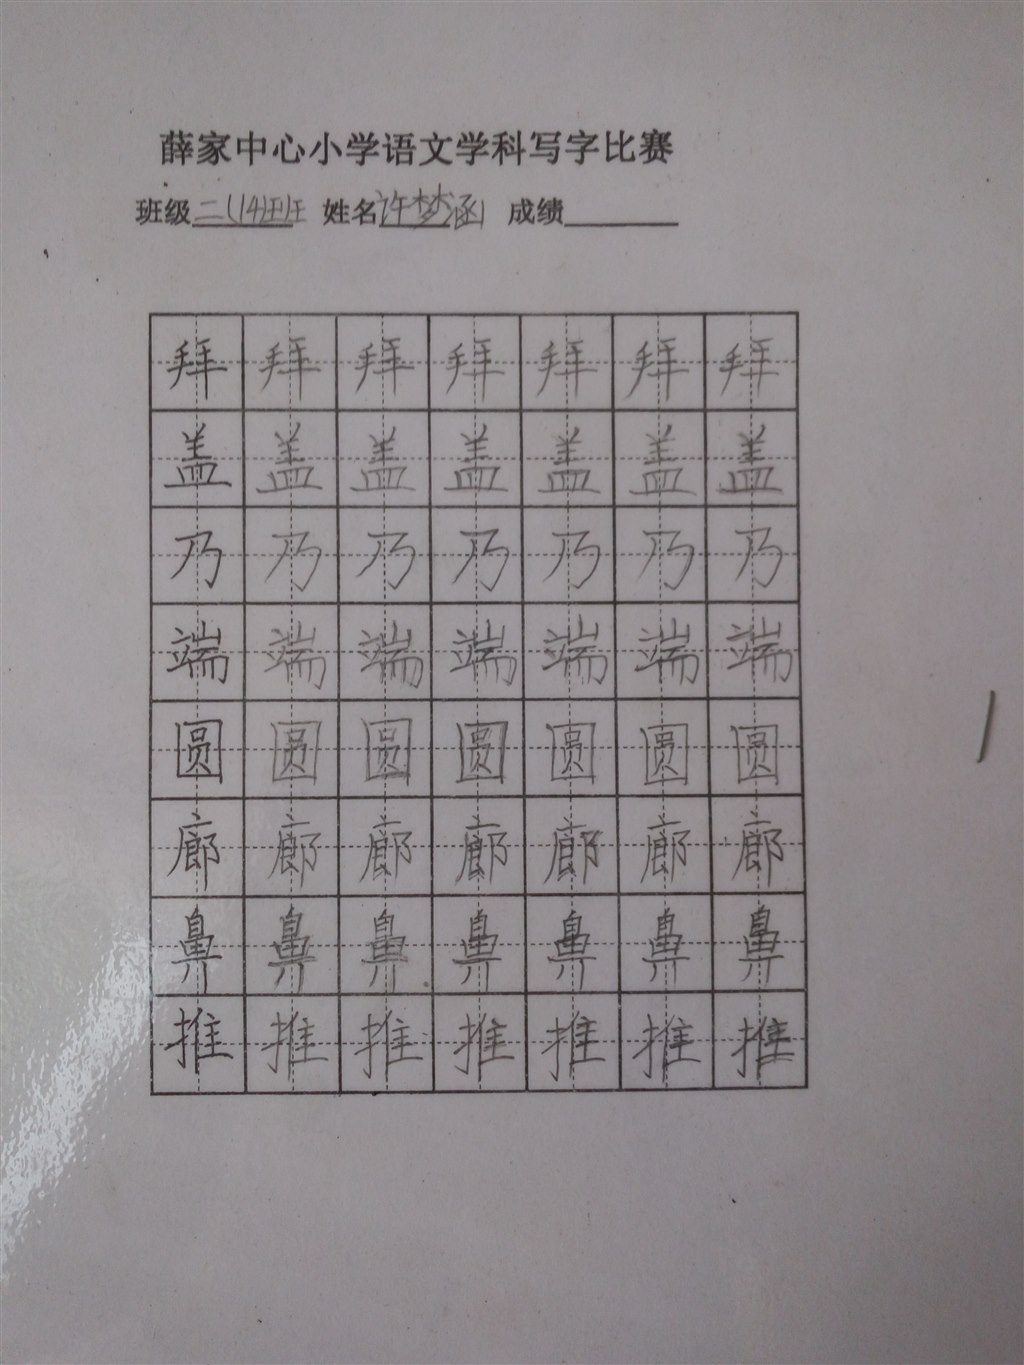 薛家中心小学语文学科写字比赛
班级二(14)班 姓名许梦涵 成绩
拜拜拜拜拜拜拜
盖盖盖盖盖盖盖
乃乃乃乃乃乃乃
端端端端端端端
圆圆圆圆圆圆圆
廊廊廊廊廊廊廊
鼻鼻鼻鼻鼻鼻鼻
推推推推推推推